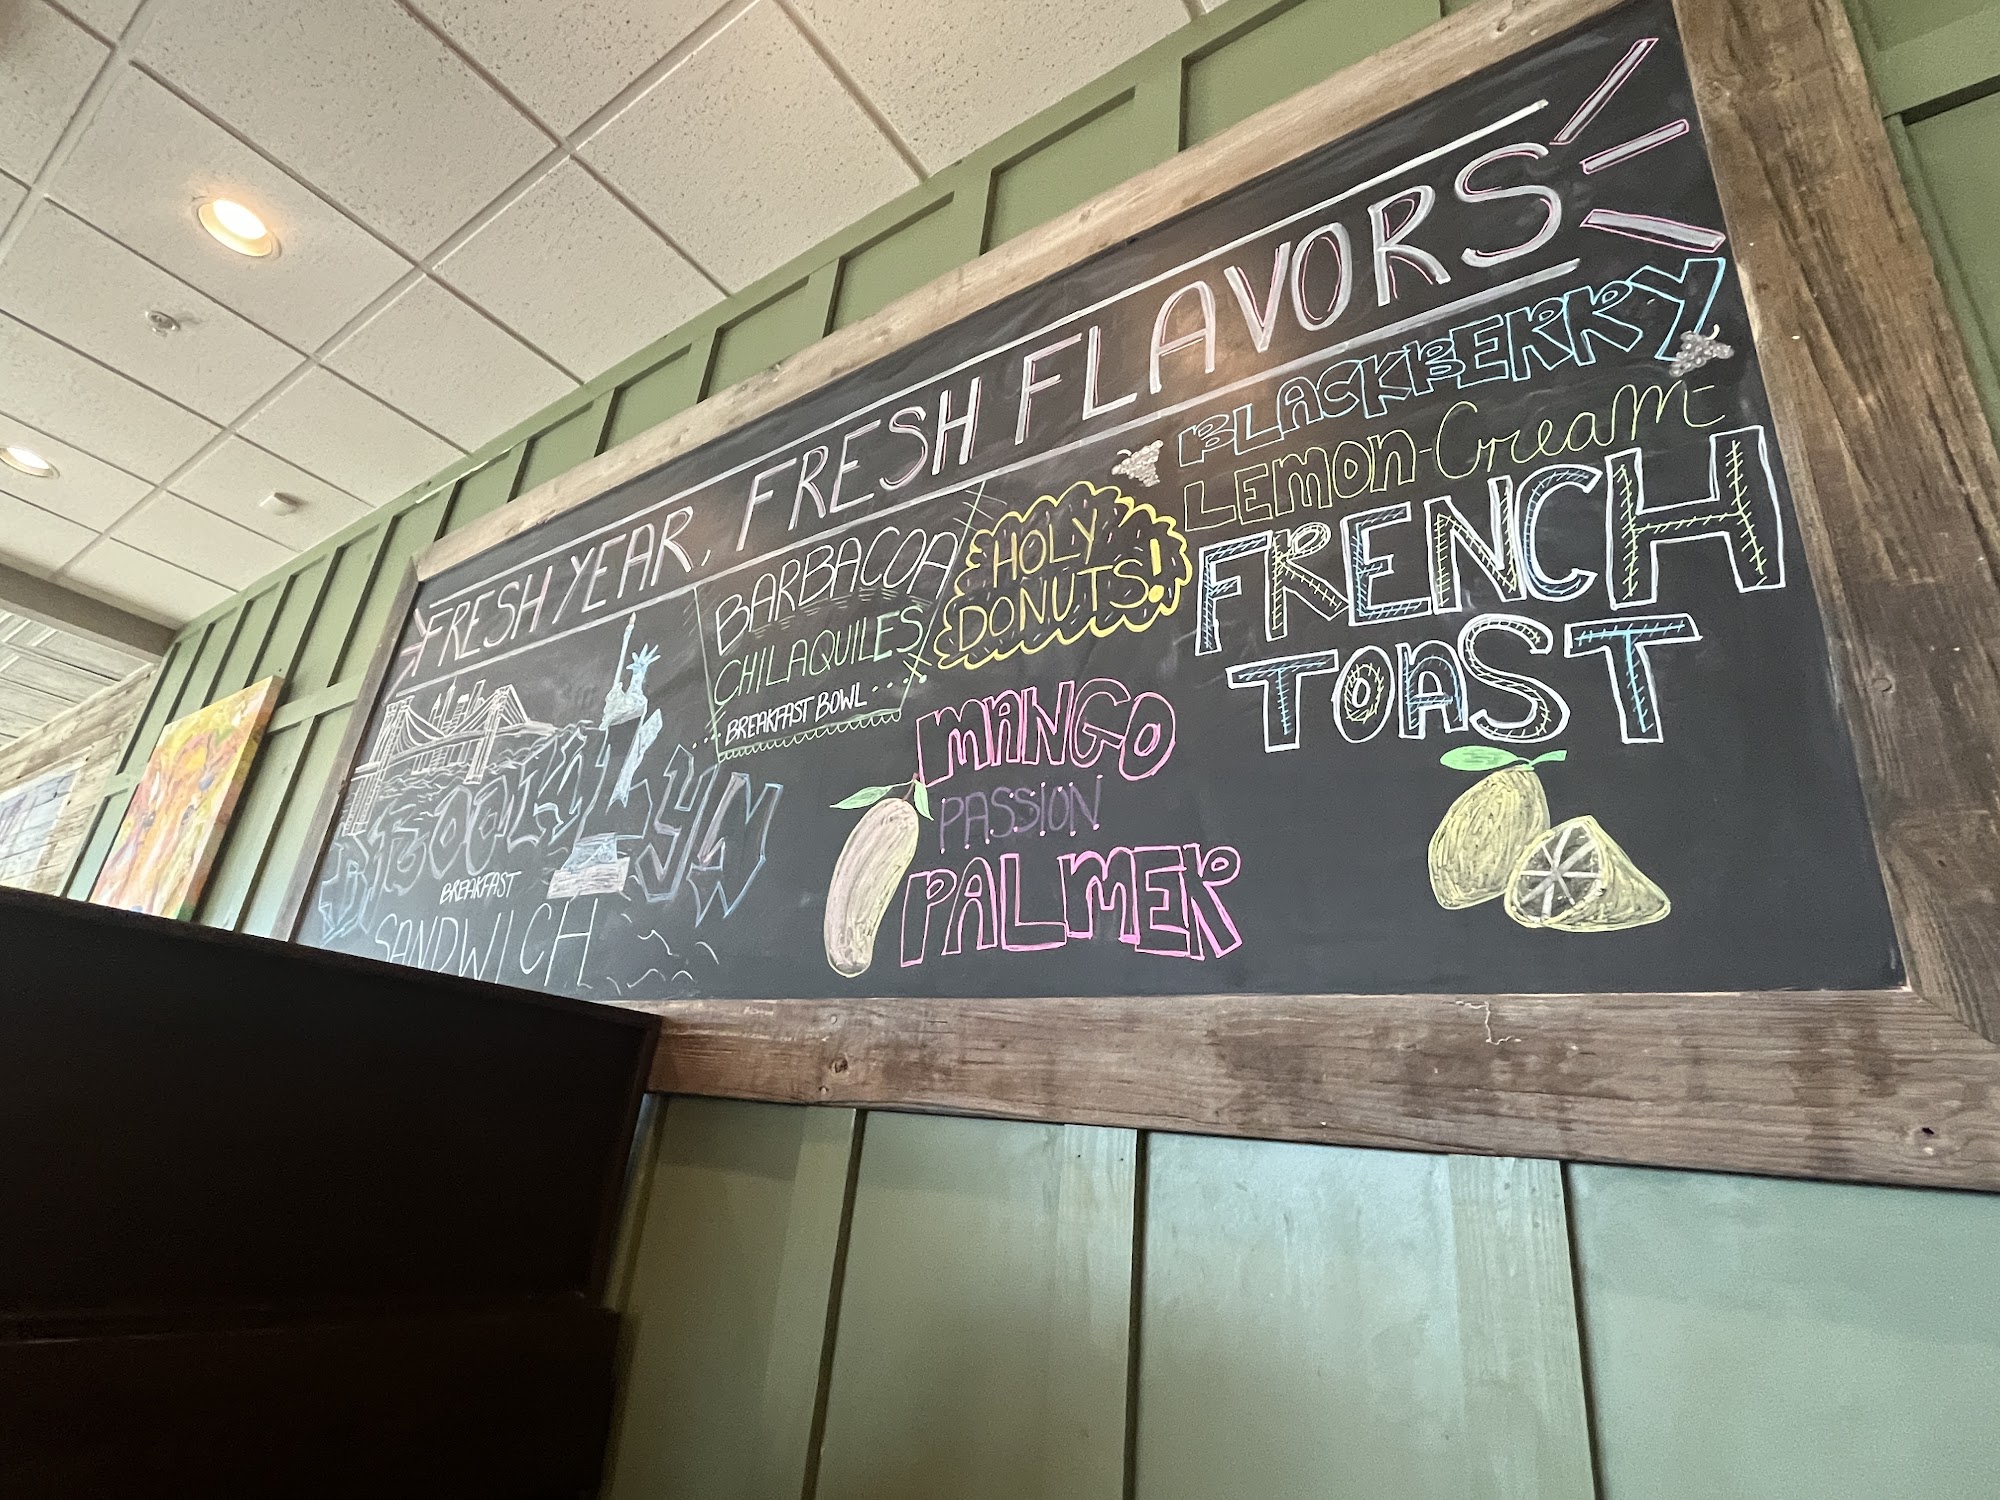 FRESH YEAR, FRESH FLAVORS
BROOKLYN
BREAKFAST
SANDWICH
BARBACOA
CHILAQUILES
BREAKFAST BOWL
HOLY
DONUTS!
MANGO
PASSION
PALMER
BLACKBERRY
LEMON-Cream
FRENCH
TOAST